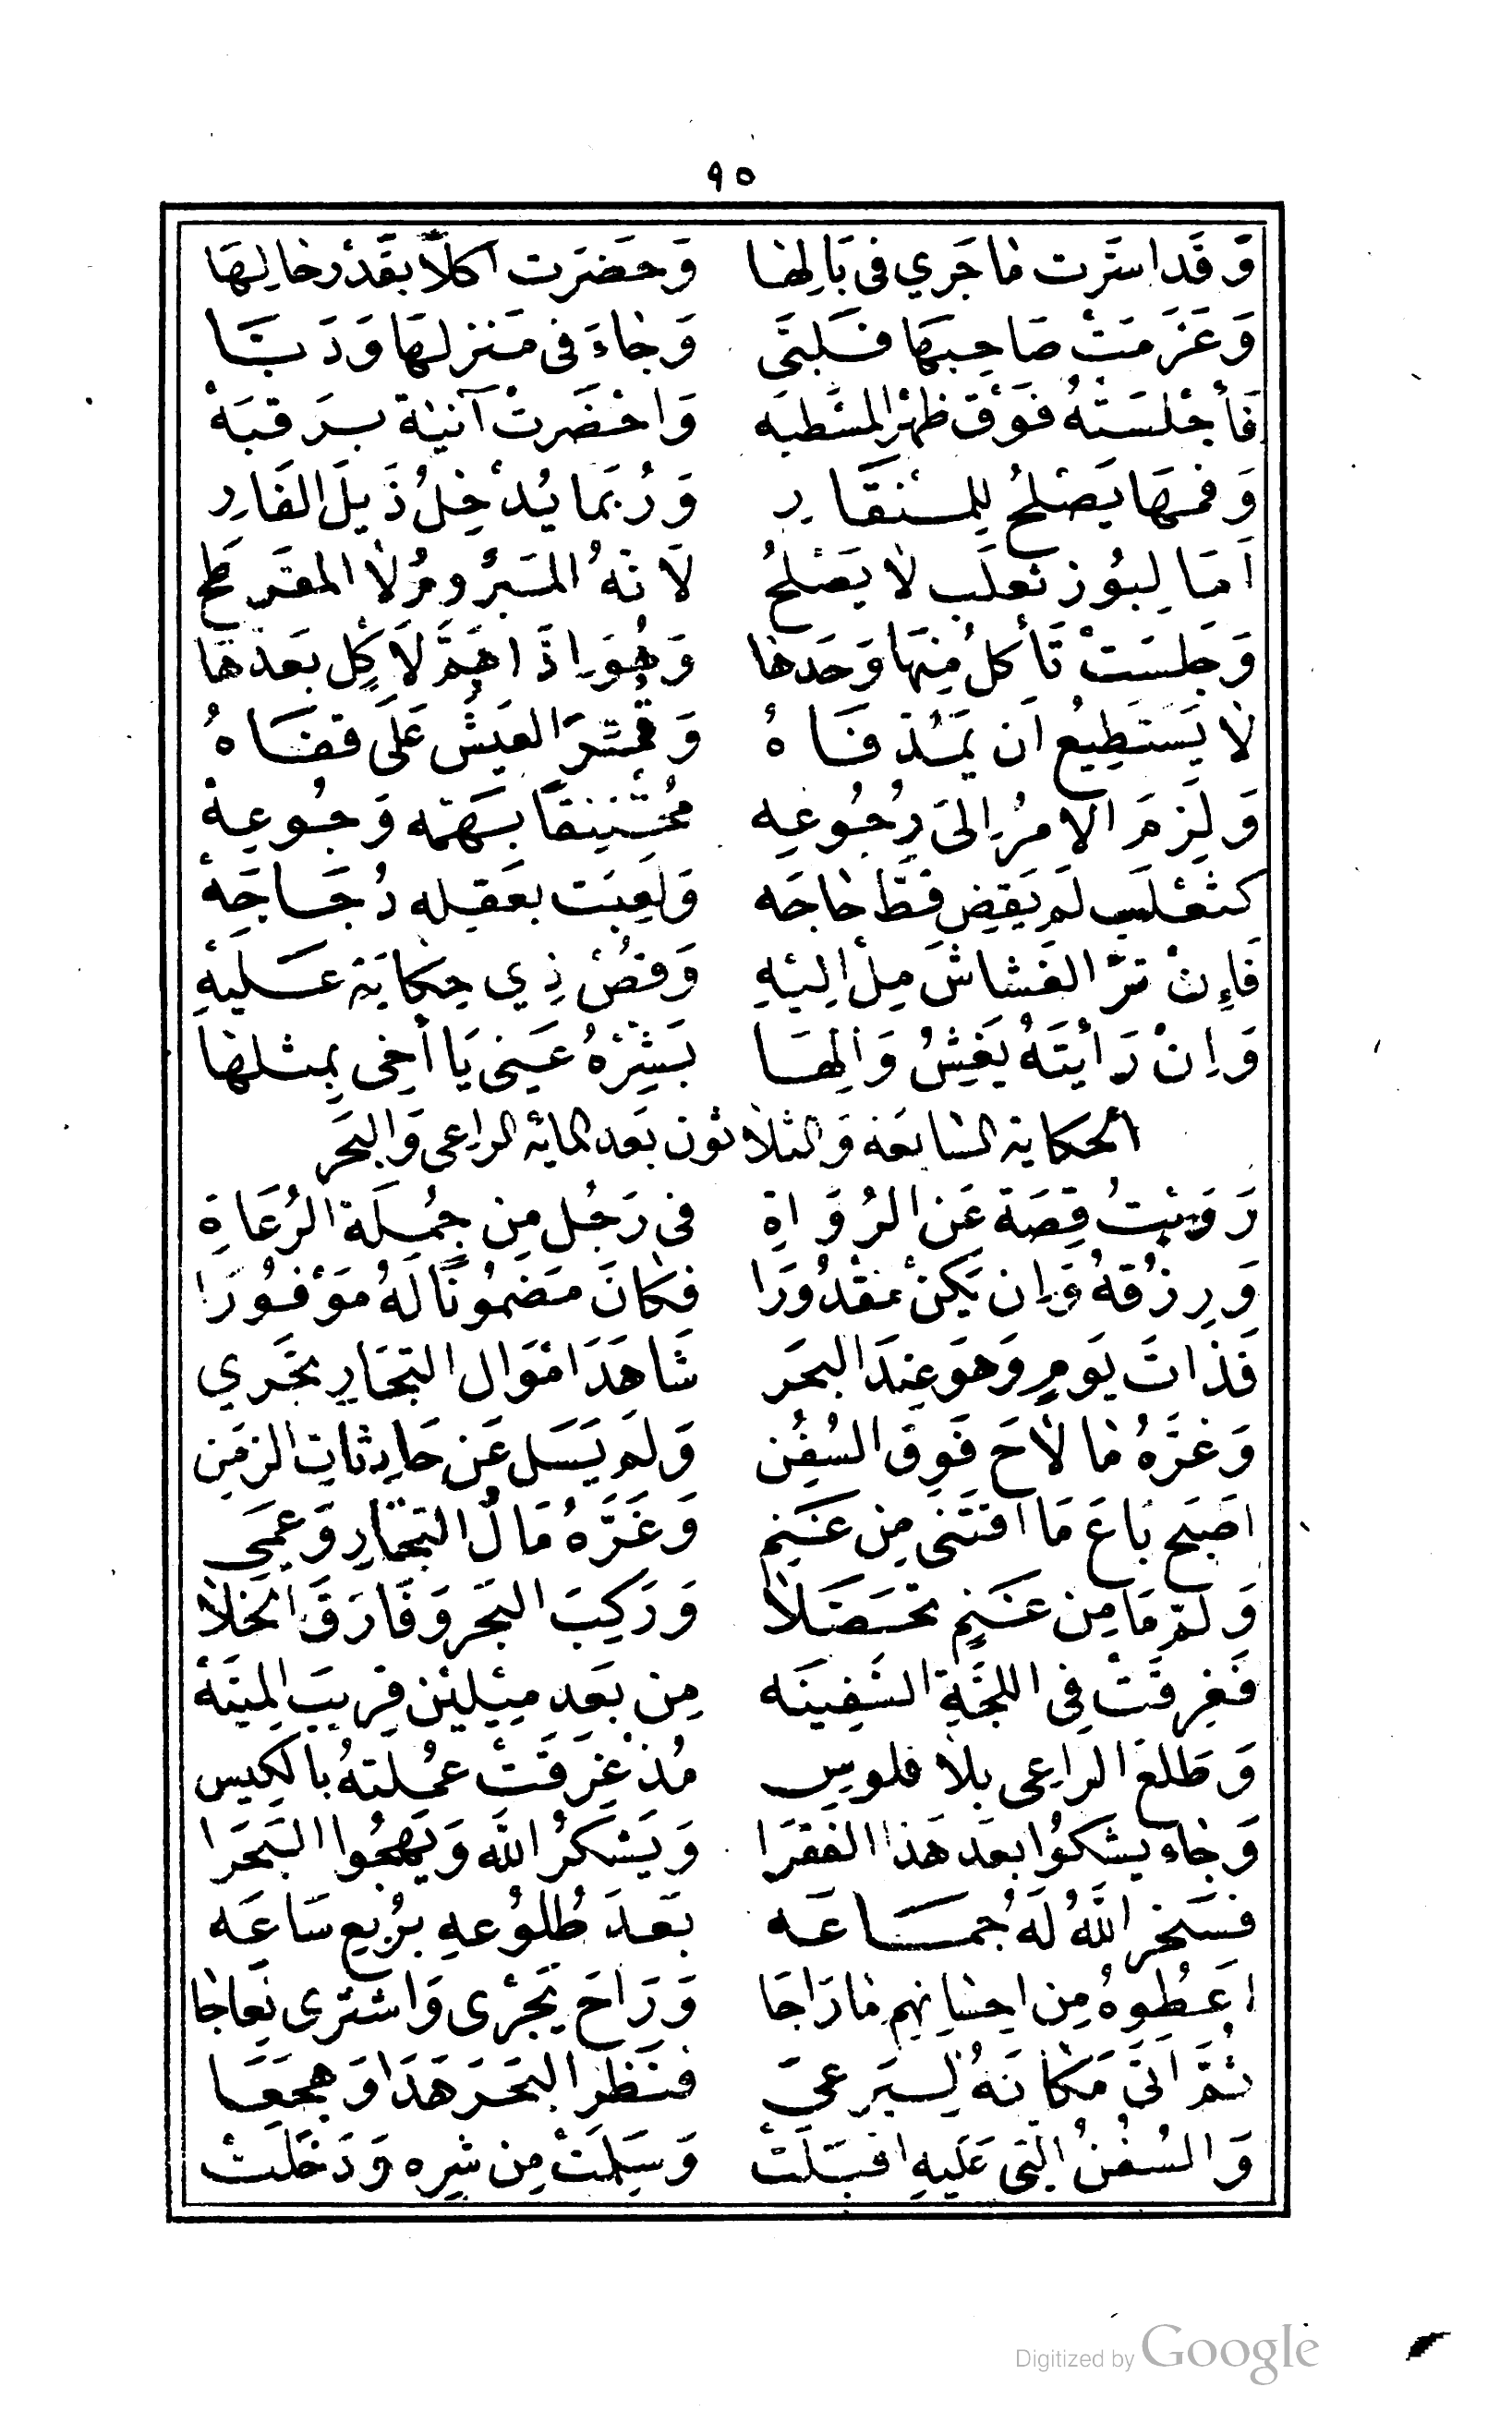 ٩٥
وَقَد اسَرَت مٰا جَري فى بَالِهٰا وَحَضَرَت اكلاً بقَدْر حٰالِهَا
وَعَزَمَتْ صَاحِبهَا فَلَبّىَ وَجٰاءَ فى مَنزلهَا وَدَبَّا
فَأجْلسَتْهُ فَوْقَ ظهْر المسْطبَه وَاحْضَرتْ آنيٰة برَقبَهْ
وَفمهَا يَصْلحُ لِلمنْقَارِ وَرُبَمَا يُدْخِلُ ذَيلَ الفَارِ
امَا لِبُوزِ ثعلَب لاٰ يَصْلحُ لاَنهُ المَبْرُومُ لاٰ المفَرطح
وَجَلسَتْ تَأكلُ مِنهَا وَحَدهٰا وَهُوَ اِذَا هَمَّ لاَكلٍ بَعدَهَا
لاٰ يَستَطِيعُ اَن يَمُدَ فَاهُ العَيشُ عَلَى قفَاهُ
وَلَزمَ الامرُ اِلىَ رجُوعِه مُختَنِقاً بهَمّه وَجُوعِهْ
كثَعْلَبٍ لَم يَقضِ قَطّ حٰاجَه وَلَعِبَت بعَقله دُجَاجَهْ
فَإنْ تَرَ الغَشاشَ مِلْ اِليْهِ وَقصُ ذِي حِكٰايَة عَليهِ
وَاِنْ رَأيْتَهُ يَغِشُ وَالِهَا بَشِرْهُ عَنى يَا أخِى بِمثلهٰا
الحكاية السٰابعَة وَالثلاٰثون بَعد المايه الراعى وَالبحَر
رَوَيتُ قِصَة عَن الرُوَاةِ فى رَجُل مِن جُملَة الرُعَاةِ
وَرِزْقهُ وَاِن يَكنْ مَقْدُورَا فكٰانَ مَضمُونًا لَهُ مَوْفُورَا
فَذاتَ يَومٍ وَهوَ عِندَ البحَر شَاهَدَ امْوَال التجَارِ تجَري
وَغرَهُ مٰا لاٰحَ فَوقَ السُفُن وَلَم يَسَل عَن حَادِثاتِ الزمَن
اصَبح بٰاعَ مَا اقتَنىَ مِن غَنَم وَغَرَّهُ مَالُ التجٰارِ وَعمِيَ
وَلَمّ مَا مِن غَنَمٍ تحَصَلاٰ وَرَكِبَ البَحَر وَفَارَقَ الخلاٰ
فَغرقَتْ فِى اللجَّةِ السَفِينَه مِن بَعَد مِيْليْن قرِيبَ المِيَنهْ
وَطَلَعَ الراعِى بلاٰ فلوسِ مُذْ غرَقَتْ عمُلتهُ بالكيس
وَجٰاء يشكوُا بعَد هَذا الفَقرَا وَيَشكرُ اللّٰه وَيَهجُوا البَحَرا
فسَخر اللّٰهُ لَهُ جمَاعَه بَعدَ طُلوُعهِ برُبع سَاعَه
اعَطُوهُ مِن احِسٰانِهم مٰا رَاجَا وَرَاحَ يَجْرى وَاشترى نِعاجٰا
ثُمَّ اتىَ مَكٰانَهُ لِيَرعىَ فنَظرَ البَحَر هَدَا وَهجَعَا
وَالسُفنُ الّتى عَلَيهِ اقبَلَتْ وَسَلِمَتْ مِن شره وَدَخَلَتْ
Digitized by Google